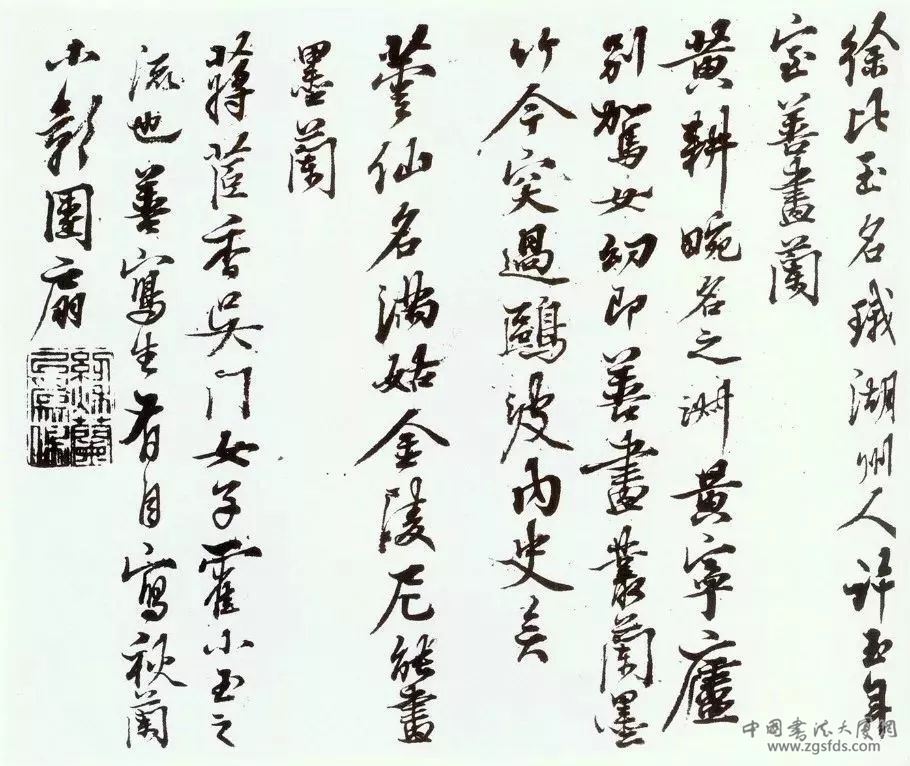 徐比玉名珴湖州人許玉年
室善畫蘭
黃耕畹名之淑黃寧廬
別駕女幼即善畫叢蘭墨
竹今突過鷗波內史矣
蕚仙名滿姑金陵尼能畫
墨蘭
蔣茝香吳門女子霍小玉之
流也善寫生有自寫秋蘭
小影團扇
中国书法大厦網
www.zgsfds.com